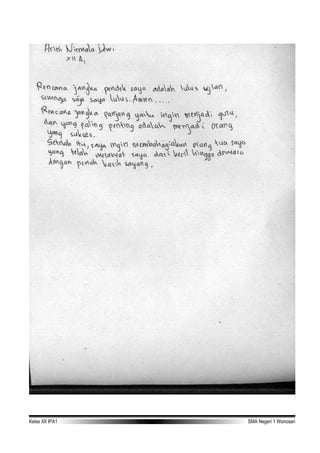 Aries Nirmala Dwi
XII A1
Rencana jangka pendek saya adalah lulus ujian,
semoga saja saya lulus. Amin....
Rencana jangka panjang yaitu ingin menjadi guru,
dan yang paling penting adalah menjadi orang
yang sukses.
Setelah itu, saya ingin membahagiakan orang tua saya
yang telah merawat saya dari kecil hingga dewasa
dengan penuh kasih sayang.
Kelas XII IPA1 SMA Negeri 1 Wonosari